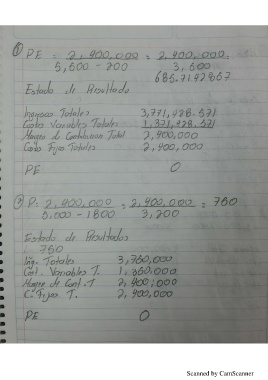 ① P.E = 2,400,000 = 2,400,000
5,500 - 200 3,500
685.7142857
Estado de Resultado
Ingresos Totales 3,771,428.571
Costos Variables Totales 1,371,428.571
Margen de Contribucion Total 2,400,000
Costo Fijos Totales 2,400,000
PE 0
② P= 2,400,000 = 2,400,000 = 750
5,000 - 1800 3,200
Estado de Resultados
750
Ing. Totales 3,750,000
Cst. Variables T. 1,350,000
Margen de Cont. T 2,400,000
C. Fijos T. 2,400,000
PE 0
Scanned by CamScanner